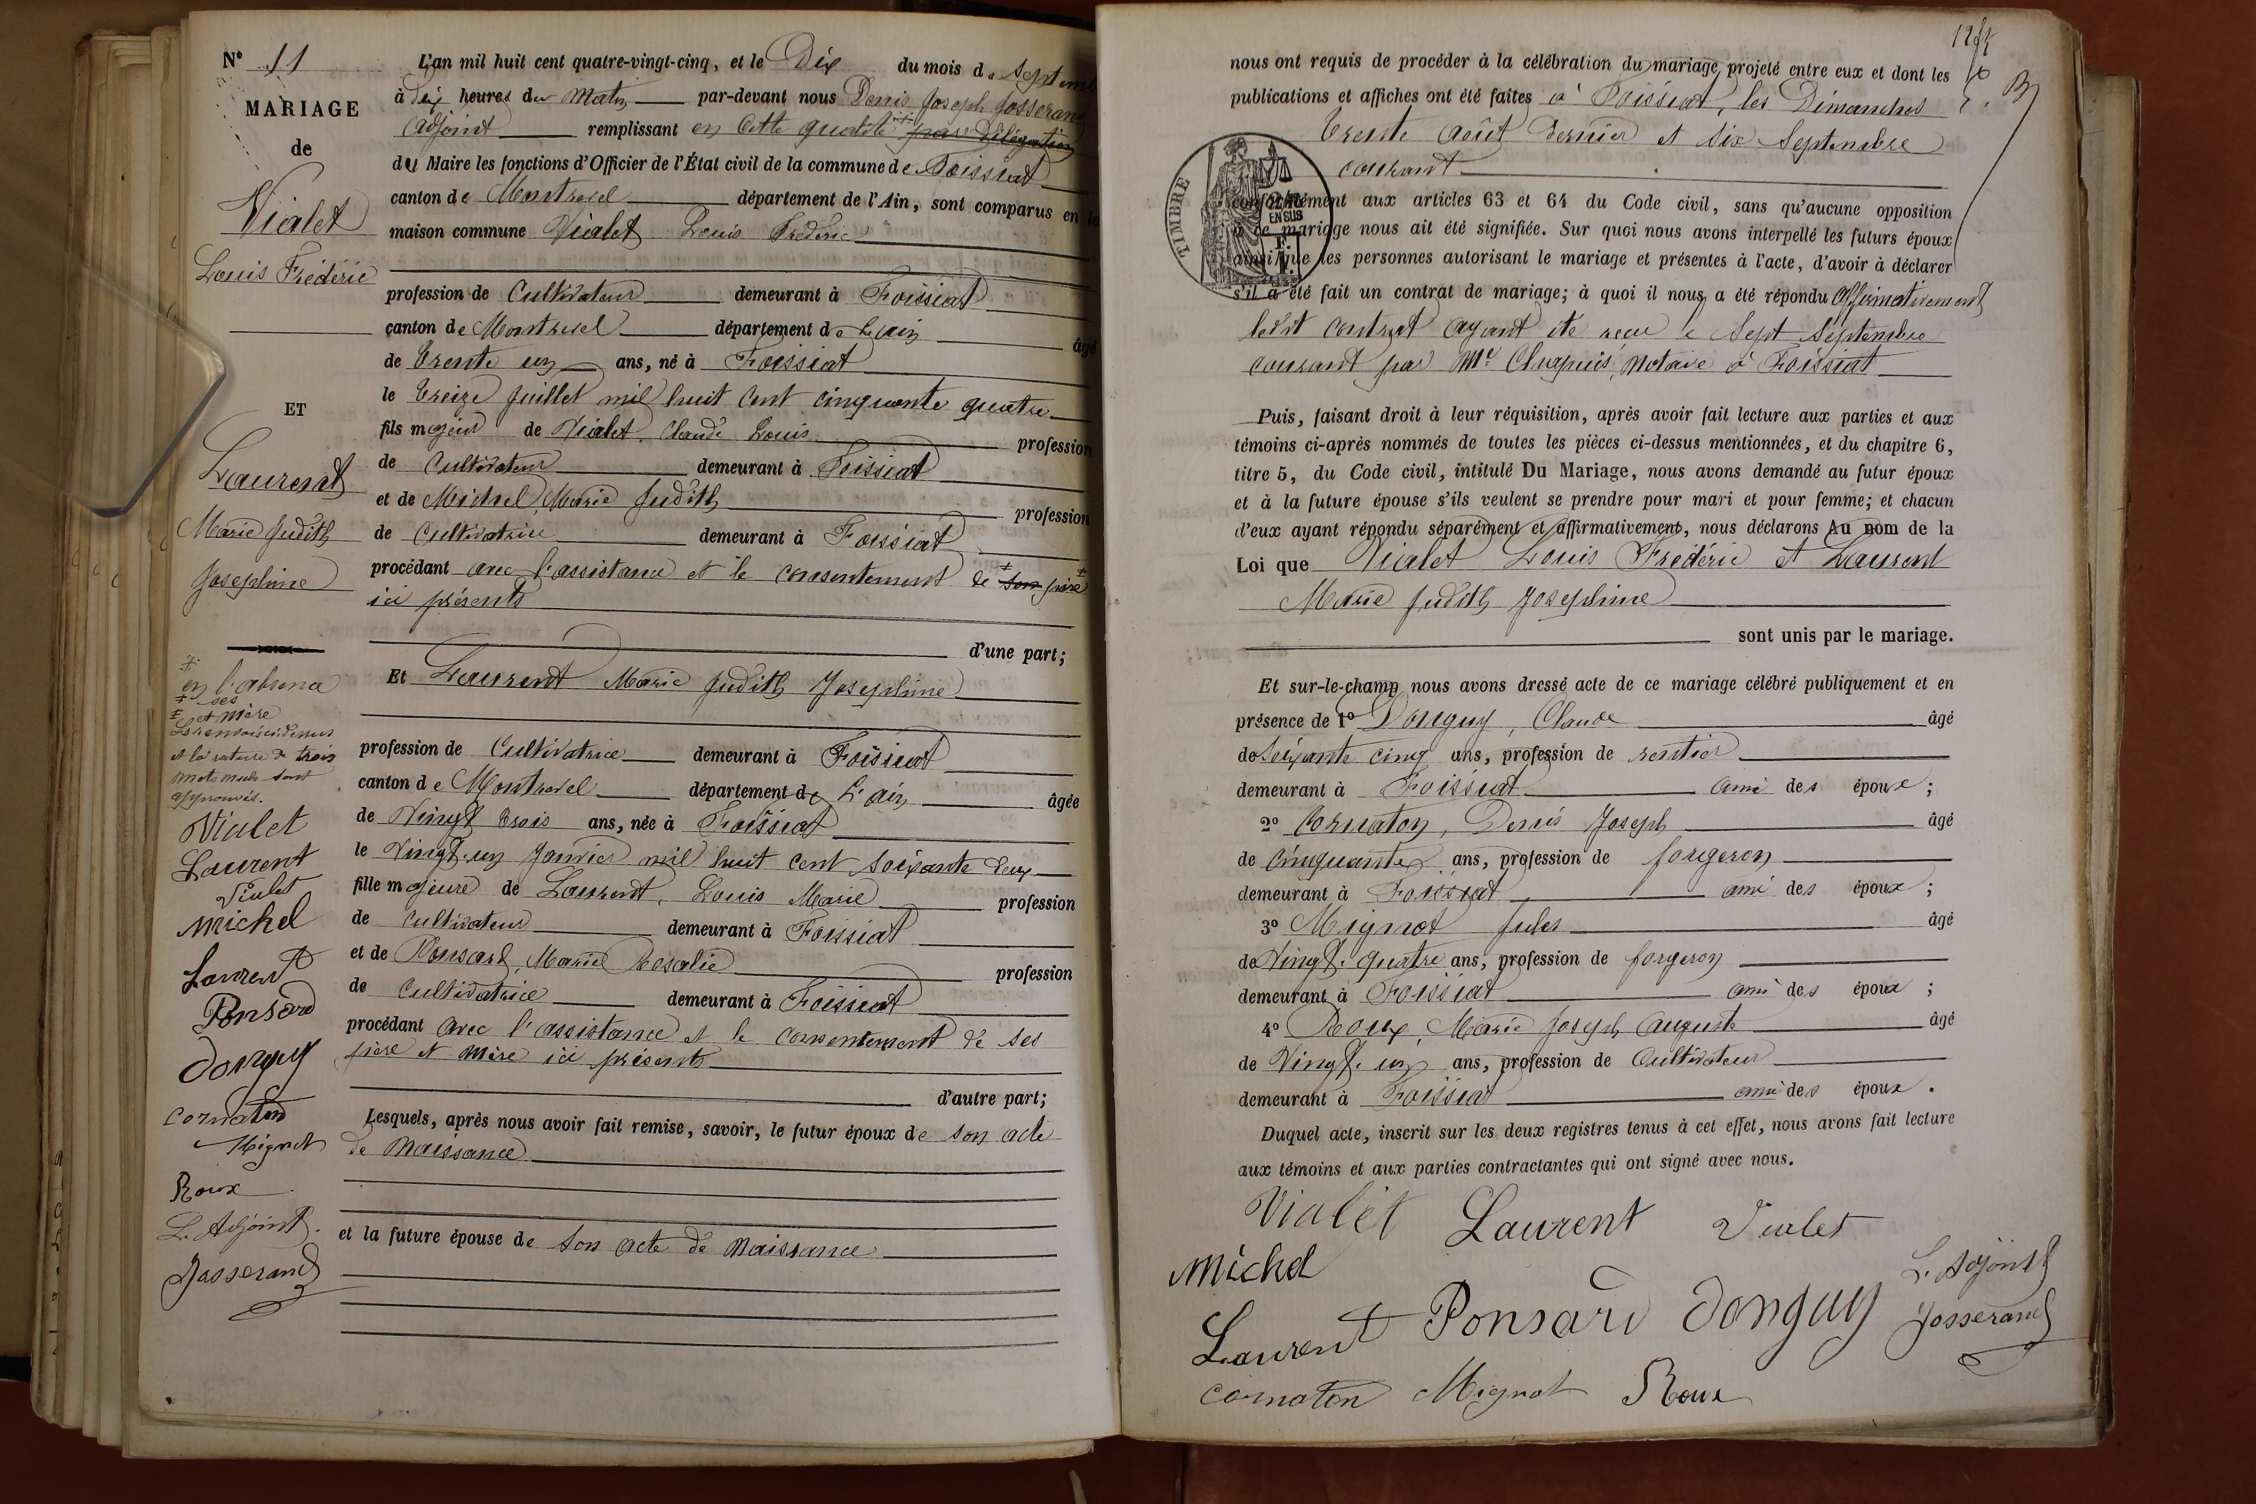 N° 11
MARIAGE
de
Vialet
Louis Frédéric
ET
Laurent
Marie Judith
Josephine
‡
en l'absence
‡ ses
‡ et mère
Les renvois ci-dessus
et la rature de trois
mots nuls sont
approuvés.
Vialet
Laurent
Vialet
Michel
Laurent
Ponsard
Donguy
Cornaton
Mignot
Roux
L'Adjoint
Josserand
L'an mil huit cent quatre-vingt-cinq, et le Dix du mois de Septemb
à dix heures du Matin par-devant nous Denis Joseph Josserand
adjoint remplissant en cette qualité par délégation
du Maire les fonctions d'Officier de l'État civil de la commune de Foissiat
canton de Montrevel département de l'Ain, sont comparus en la
maison commune Vialet Louis Frédéric
profession de Cultivateur demeurant à Foissiat
canton de Montrevel département de L'ain âgé
de Trente un ans, né à Foissiat
le treize Juillet mil huit cent cinquante quatre
fils majeur de Vialet, Claude Louis profession
de cultivateur demeurant à Foissiat
et de Michel, Marie Judith profession
de cultivatrice demeurant à Foissiat
procédant avec l'assistance et le consentement de ‡ son père ‡
ici présents
d'une part;
Et Laurent Marie Judith Josephine
profession de Cultivatrice demeurant à Foissiat
canton de Montrevel département de L'ain âgée
de Vingt trois ans, née à Foissiat
le Vingt-un Janvier mil huit cent soixante deux
fille majeure de Laurent, Louis Marie profession
de cultivateur demeurant à Foissiat
et de Ponsard, Marie Rosalie profession
de cultivatrice demeurant à Foissiat
procédant avec l'assistance et le consentement de ses
père et mère ici présents
d'autre part;
Lesquels, après nous avoir fait remise, savoir, le futur époux de son acte
de Naissance
et la future épouse de son acte de Naissance
nous ont requis de procéder à la célébration du mariage projeté entre eux et dont les
publications et affiches ont été faites à Foissiat, les Dimanches
trente août dernier et six Septembre
courant
TIMBRE
EN SUS
conformément aux articles 63 et 64 du Code civil, sans qu'aucune opposition
à ce mariage nous ait été signifiée. Sur quoi nous avons interpellé les futurs époux
ainsi que les personnes autorisant le mariage et présentes à l'acte, d'avoir à déclarer
s'il a été fait un contrat de mariage; à quoi il nous a été répondu Affirmativement
ledit contrat ayant été reçu le Sept Septembre
courant par Me Chapuis, Notaire à Foissiat
Puis, faisant droit à leur réquisition, après avoir fait lecture aux parties et aux
témoins ci-après nommés de toutes les pièces ci-dessus mentionnées, et du chapitre 6,
titre 5, du Code civil, intitulé Du Mariage, nous avons demandé au futur époux
et à la future épouse s'ils veulent se prendre pour mari et pour femme; et chacun
d'eux ayant répondu séparément et affirmativement, nous déclarons Au nom de la
Loi que Vialet Louis Frédéric et Laurent
Marie Judith Josephine
sont unis par le mariage.
Et sur-le-champ nous avons dressé acte de ce mariage célébré publiquement et en
présence de 1° Donguy, Claude âgé
de soixante cinq ans, profession de rentier
demeurant à Foissiat ami des époux;
2° Cornaton, Denis Joseph âgé
de cinquante ans, profession de forgeron
demeurant à Foissiat ami des époux;
3° Mignot Jules âgé
de Vingt-quatre ans, profession de forgeron
demeurant à Foissiat ami des époux;
4° Roux, Marie Joseph Auguste âgé
de Vingt-un ans, profession de Cultivateur
demeurant à Foissiat ami des époux.
Duquel acte, inscrit sur les deux registres tenus à cet effet, nous avons fait lecture
aux témoins et aux parties contractantes qui ont signé avec nous.
Vialet Laurent Vialet
Michel L'Adjoint
Laurent Ponsard Donguy Josserand
Cornaton Mignot Roux